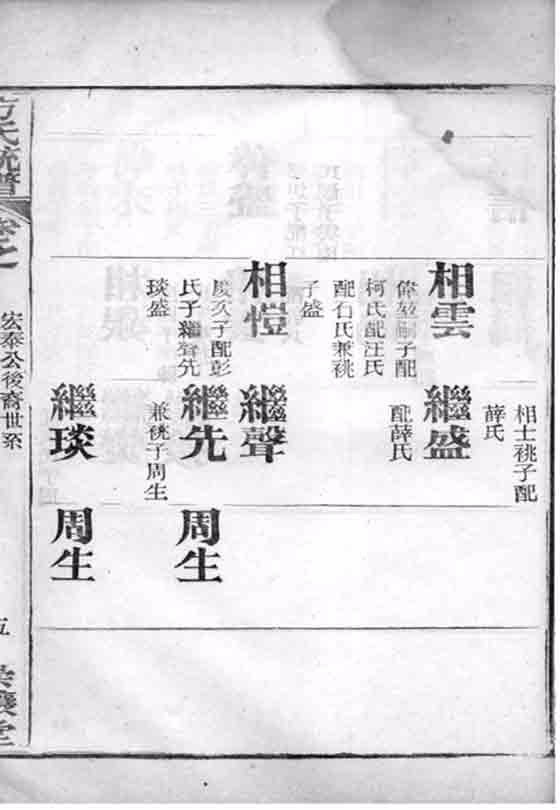 相士祧子配
薛氏
相雲
嗣子配
柯氏配汪氏
配石氏兼祧
子盛
繼盛
配薛氏
相愷
久子配彭
氏子繼聲先
琰盛
繼聲
繼先
兼祧子周生
周生
繼琰
周生
方氏統譜
卷之
宏泰公後裔世系
五